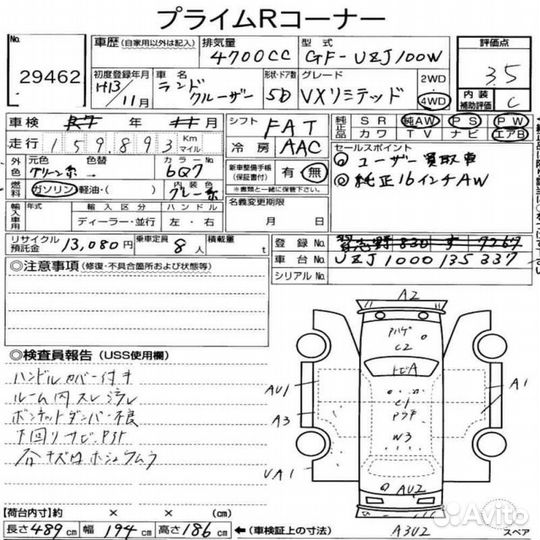 プライムRコーナー
No. 29462
車歴 (自家用以外は記入)
排気量 4700CC
型式 GF-UZJ100W
評価点 3.5
初度登録年月 H13/11月
車名 ランドクルーザー
形状・ドア数 5D
グレード VXリミテッド
2WD
4WD
内装補助評価 C
車検 年 月
走行 159,893 Km マイル
シフト FAT
冷房 AAC
純正品 SR 純AW PS PW
カワ TV ナビ エアB
外色 元色 グリーン系 色替 カラーNo. 6Q7
燃料 ガソリン 軽油・( ) 内装色 グレー系
新車整備手帳(保証書付) 有 無
※書類と一緒に保管して下さい。
セールスポイント
①ユーザー買取車
②純正16インチAW
輸入車用 年式 ディーラー・並行 ハンドル 左・右
名義変更期限 月 日
リサイクル預託金 13,080円 乗車定員 8人 積載量 t
登録No.
車台No. UZJ1000135337
シリアルNo.
◎注意事項 (修復・不具合箇所および状態等)
◎検査員報告 (USS使用欄)
ハンドルカバー付き
ルーム内スレ
ボンネットダンパー不良
下回りサビ
各キズ
A2
C2
AU1
A1
A3
C1
W3
UA1
AU2
A3U2
スペア
【荷台内寸】約 × × (cm)
長さ489cm 幅194cm 高さ186cm (車検証上の寸法)
Avito